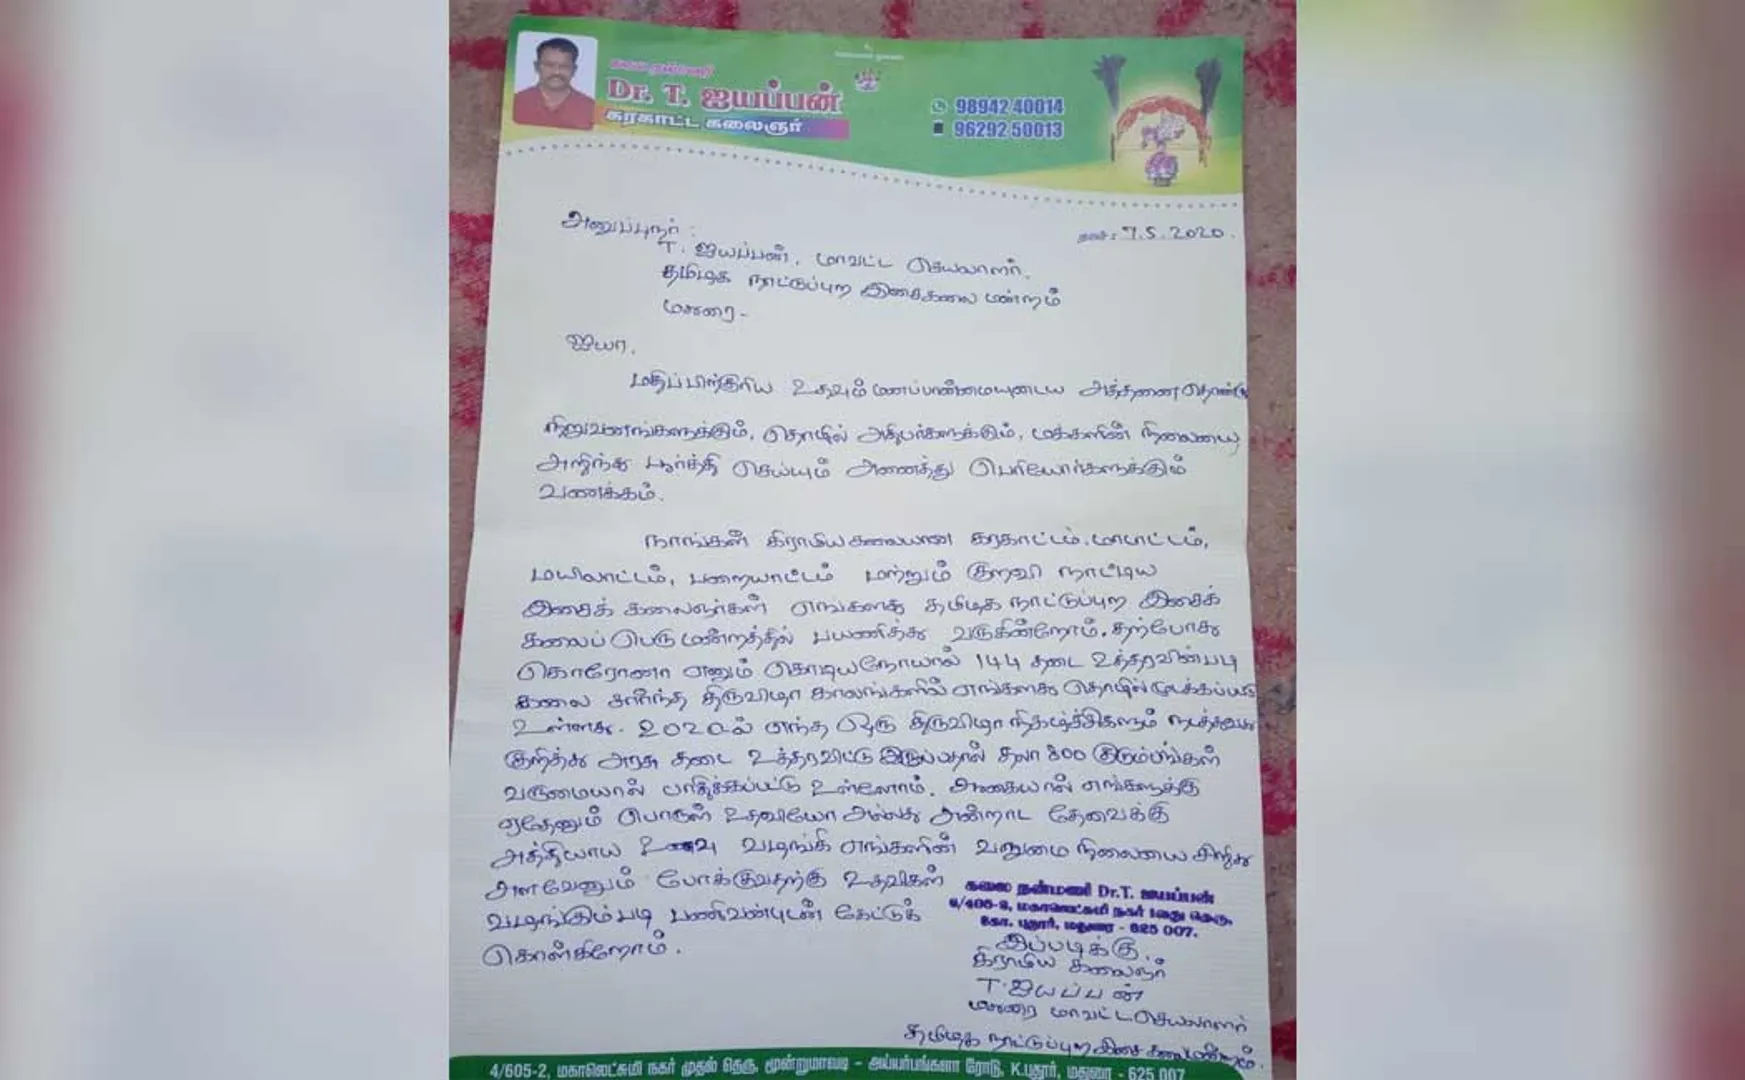 Dr. T. ஐயப்பன்
கரகாட்ட கலைஞர்
98942 40014
96292 50013
அனுப்புநர் :
நாள்: 7.5.2020.
T. ஐயப்பன், மாவட்ட செயலாளர்,
தமிழக நாட்டுப்புற இசைகலை மன்றம்
மதுரை-
ஐயா,
மதிப்பிற்குரிய உதவும் மனப்பான்மையுடைய அத்தனை தொண்டு
நிறுவனங்களுக்கும், தொழில் அதிபர்களுக்கும், மக்களின் நிலையை
அறிந்து பூர்த்தி செய்யும் அணைத்து பெரியோர்களுக்கும்
வணக்கம்.
நாங்கள் கிராமிய கலையான கரகாட்டம், மாடாட்டம்,
மயிலாட்டம், பறையாட்டம் மற்றும் குறவி நாட்டிய
இசைக் கலைஞர்கள் எங்களது தமிழக நாட்டுப்புற இசைக்
கலைப் பெரு மன்றத்தில் பயணித்து வருகின்றோம். தற்போது
கொரோனா எனும் கொடிய நோயால் 144 தடை உத்தரவின்படி
கலை சார்ந்த திருவிழா காலங்களில் எங்களது தொழில் முடக்கப்பட்டு
உள்ளது. 2020ல் எந்த ஒரு திருவிழா நிகழ்ச்சிகளும் நடத்துவது
குறித்து அரசு தடை உத்தரவிட்டு இருப்பதால் சுமார் 800 குடும்பங்கள்
வறுமையால் பாதிக்கப்பட்டு உள்ளோம். ஆகையால் எங்களுக்கு
ஏதேனும் பொருள் உதவியோ அல்லது அன்றாட தேவைக்கு
அத்தியாய உணவு வழங்கி எங்களின் வறுமை நிலையை சிறிது
அளவேனும் போக்குவதற்கு உதவிகள்
வழங்கும்படி பணிவன்புடன் கேட்டுக்
கொள்கிறோம்.
கலை நன்மணி Dr.T. ஐயப்பன்
4/605-2, மகாலெட்சுமி நகர் 1வது தெரு,
கோ. புதூர், மதுரை - 625 007.
இப்படிக்கு,
கிராமிய கலைஞர்
T. ஐயப்பன்
மதுரை மாவட்ட செயலாளர்
தமிழக நாட்டுப்புற இசை கலைமன்றம்.
4/605-2, மகாலெட்சுமி நகர் முதல் தெரு, மூன்றுமாவடி - அய்யர்பங்களா ரோடு, K.புதூர், மதுரை - 625 007